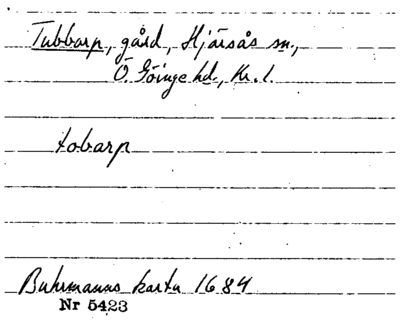 Tubbarp, gård, Hjärsås sn,
Ö. Göinge hd, Kr. l.
tobarp
Buhrmanns karta 1684
Nr 5423